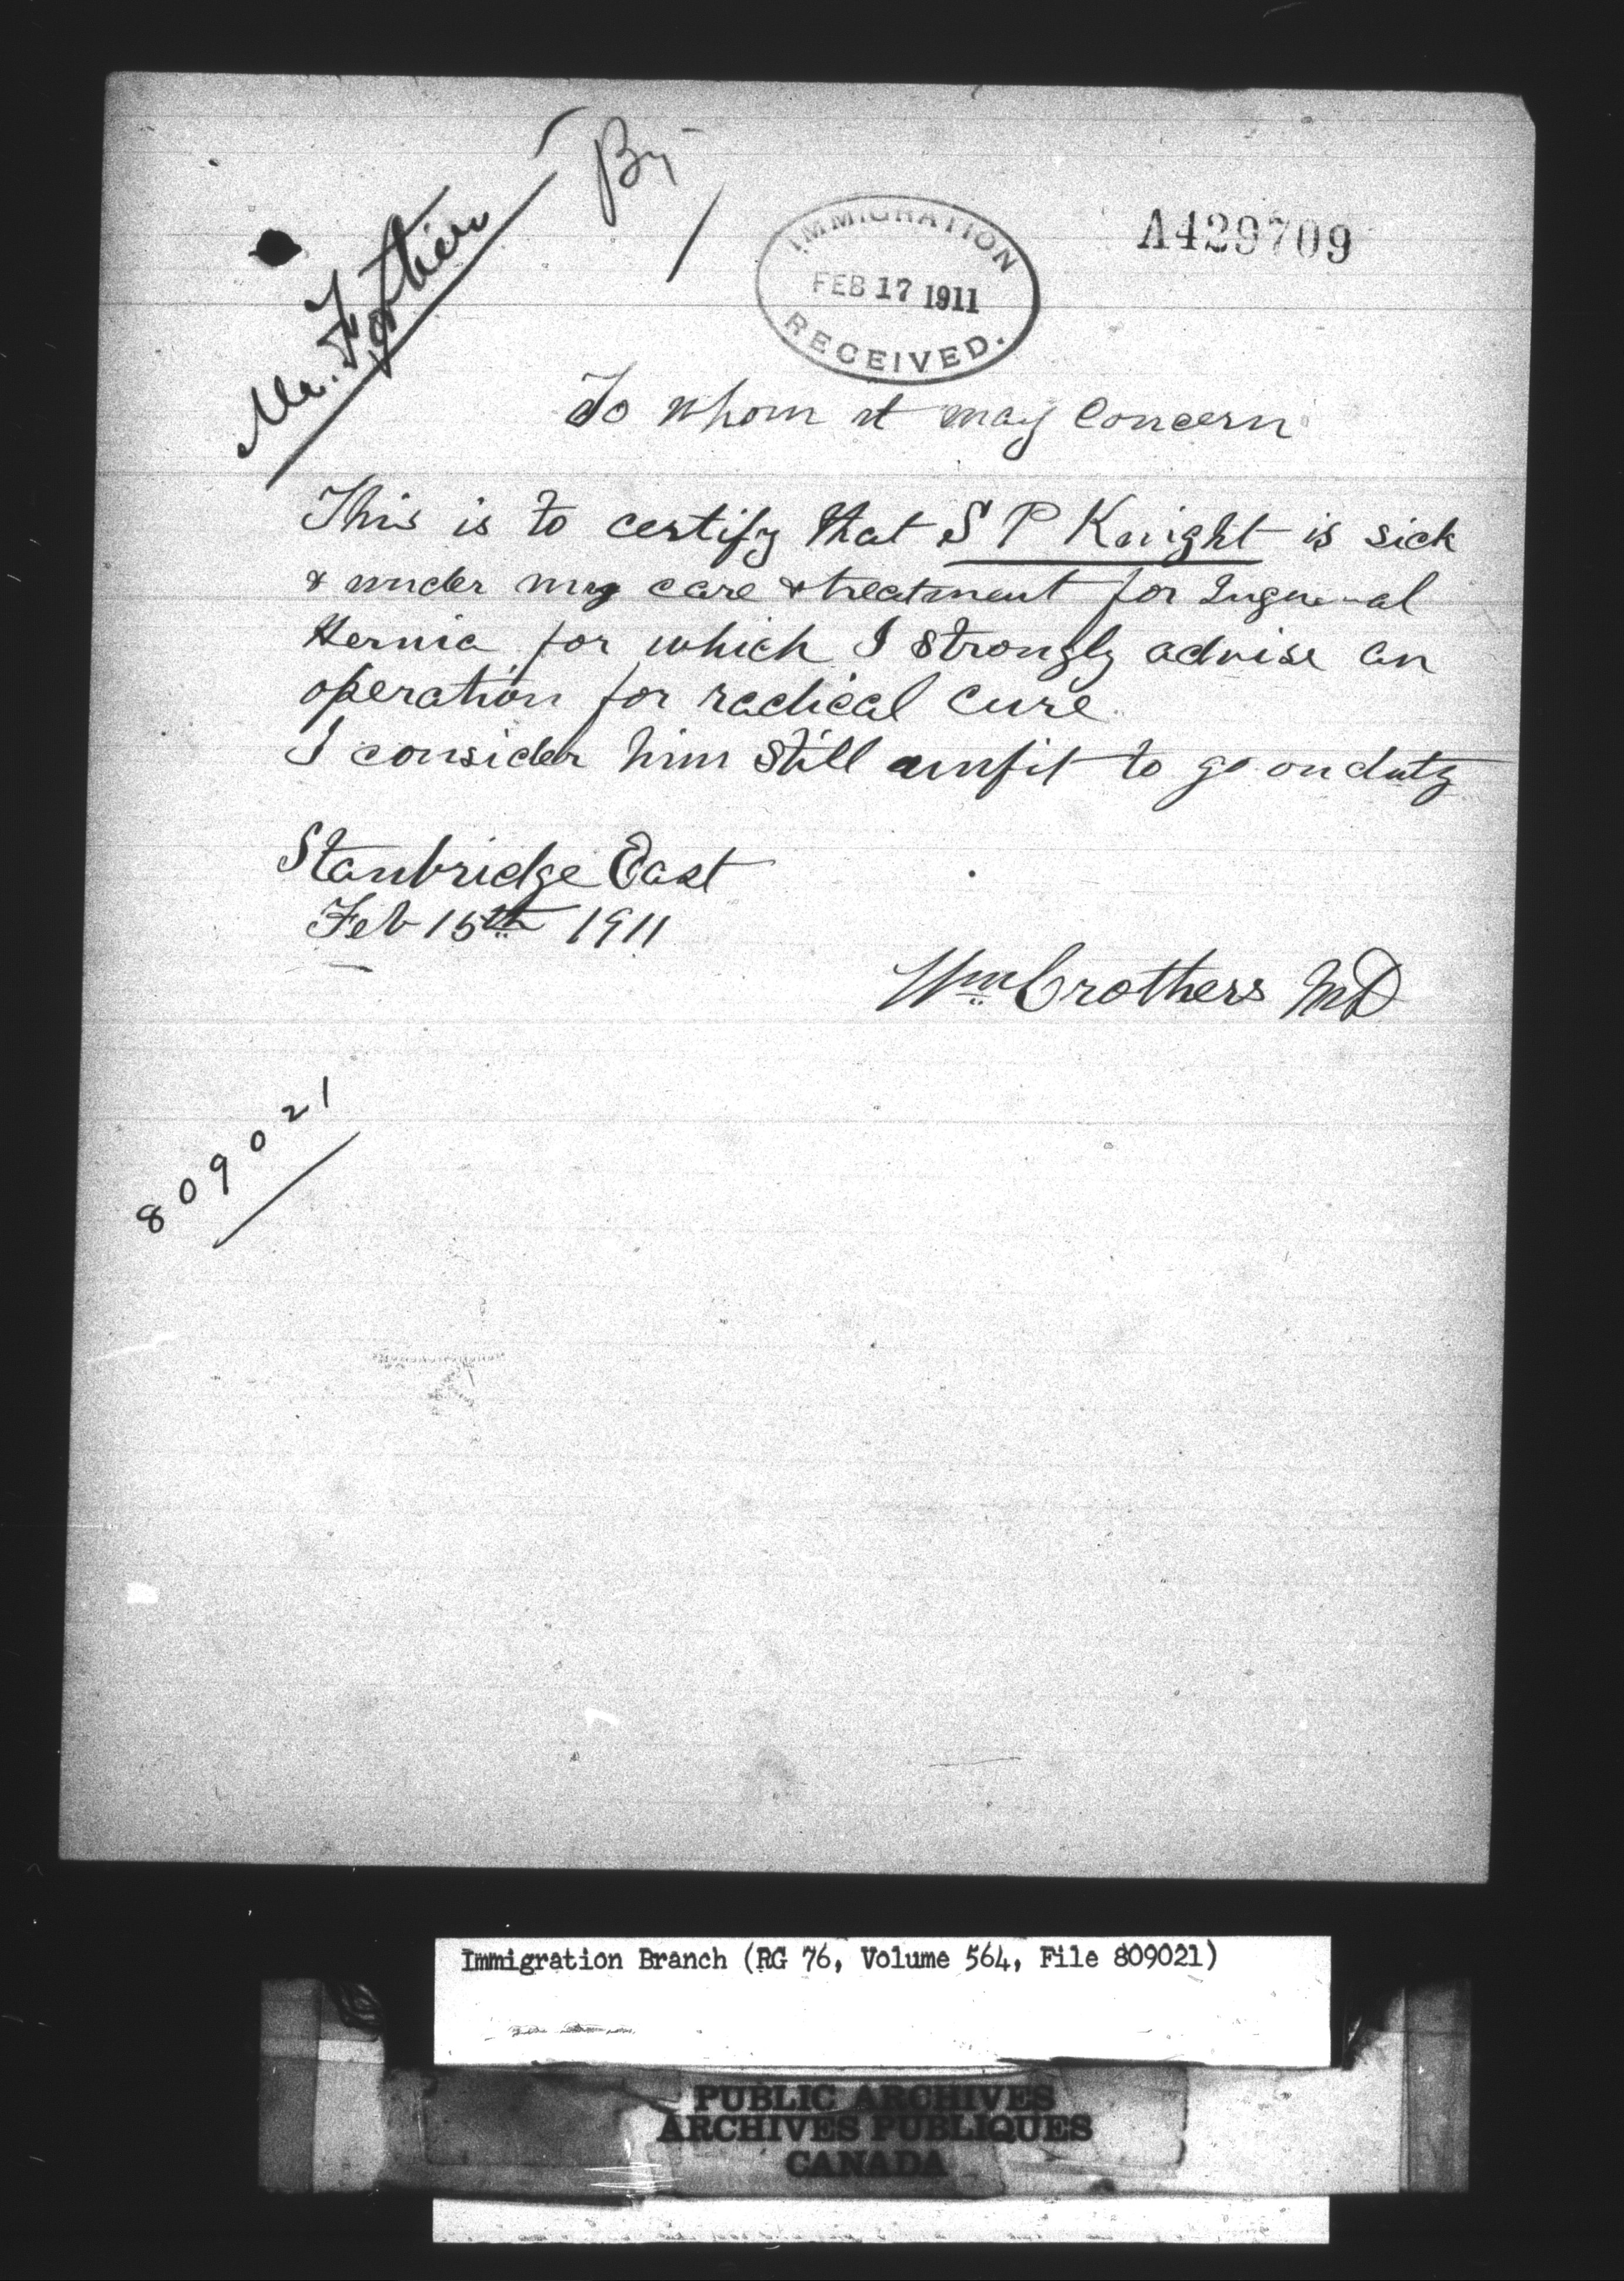 Mr. Fortier
By
IMMIGRATION
FEB 17 1911
RECEIVED.
A429709
To whom it may Concern
This is to certify that S P Knight is sick
& under my care & treatment for Inguinal
Hernia for which I strongly advise an
operation for radical cure
I consider him still unfit to go on duty
Stanbridge East
Feb 15th 1911
Wm Crothers MD
809021
Immigration Branch (RG 76, Volume 564, File 809021)
PUBLIC ARCHIVES
ARCHIVES PUBLIQUES
CANADA